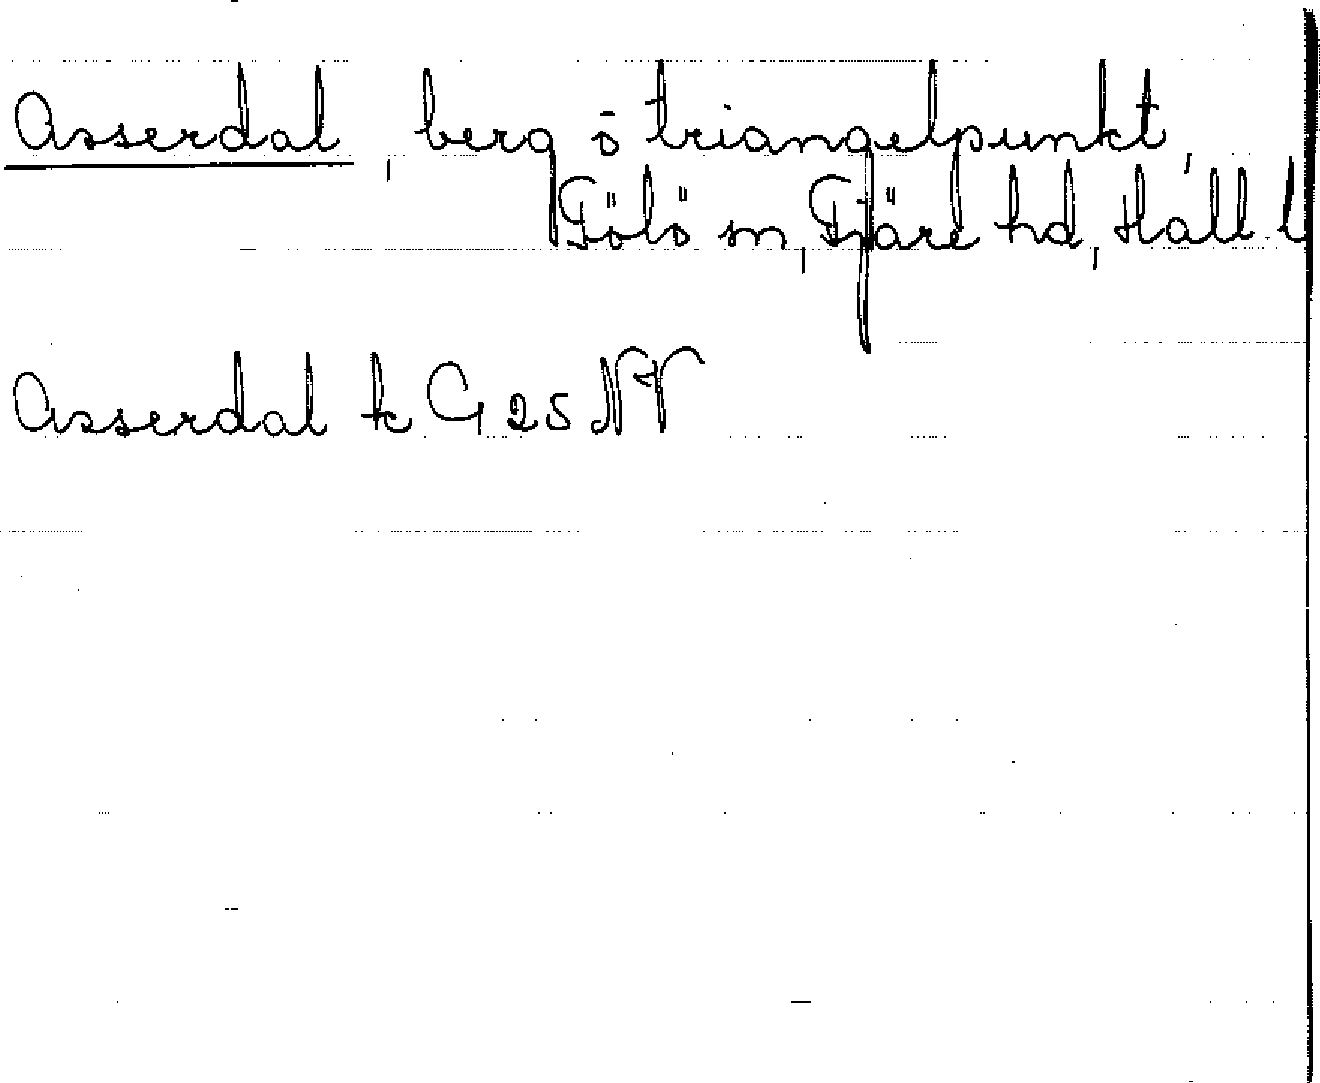 Asserdal, berg o triangelpunkt,
Fölö sn, Fjäre hd, Hall. l
Asserdal k G 25 NV